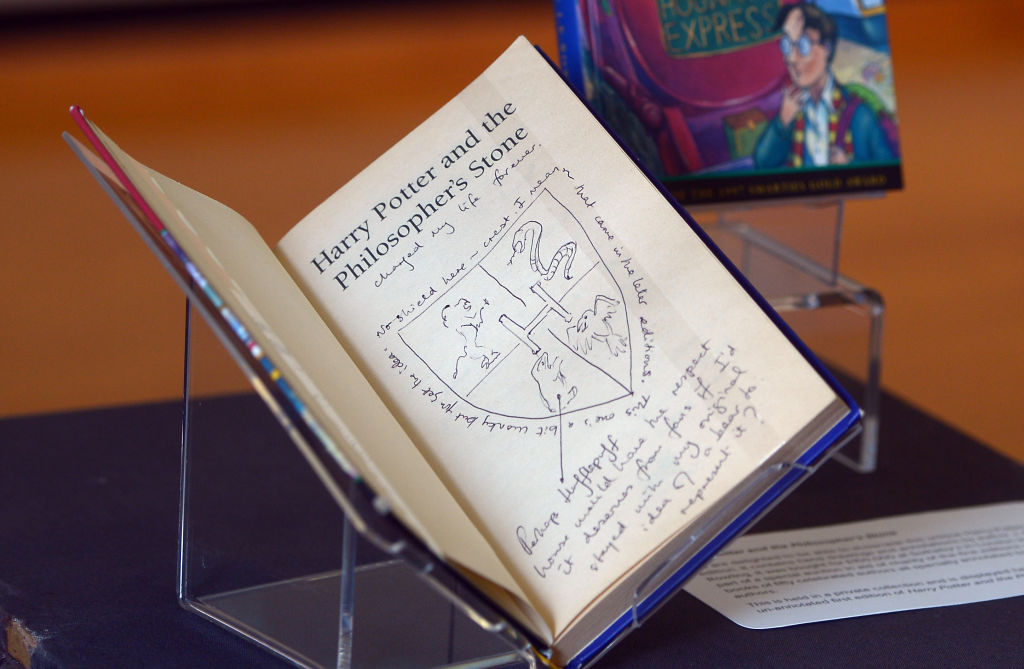 HOGWARTS
EXPRESS
Harry Potter and the
Philosopher's Stone
changed my life forever.
No shield here – crest. I mean that came in the later editions. This one is a bit wonky but you get the idea.
H
Perhaps Hufflepuff
house would have the respect
it deserves from fans if I'd
stayed with my original
idea of a bear to
represent it?
and the Philosopher's Stone
authors.
This is held in a private collection and is displayed
un-annotated first edition of Harry Potter and the